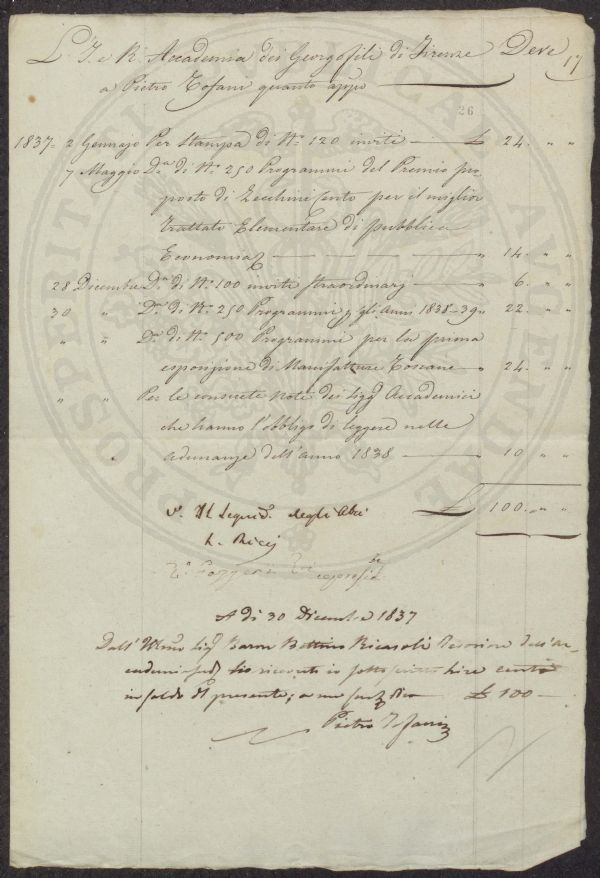 L'I. e R. Accademia dei Georgofili di Firenze Deve 17
a Pietro Tofani quanto app.o
26
1837= 2 Gennajo Per Stampa di N.o 120 inviti £ 24. " "
7 Maggio D.a di N.o 250 Programmi del Premio pro
posto di Zecchini Cento per il miglior
trattato Elementare di pubblica
Economia " 14. " "
28 Dicembre D.a di N.o 100 inviti straordinarj " 6. " "
30 " D.a di N.o 250 Programmi p gli Anni 1838-39 " 22. " "
" " D.a di N.o 500 Programmi per la prima
esposizione di Manifatture Toscane " 24. " "
" " Per le consuete note dei Sigg. Accademici
che hanno l'obbligo di leggere nelle
adunanze dell'anno 1838 " 10 " "
£ 100. " "
V. Il Segret.o degli Atti
A dì 30 Dicembre 1837
Dall'Ill.mo Sig. Baron Bettino Ricasoli Tesoriere dell'Ac-
cademia sud. ho ricevuti io sottoscritto Lire cento
in saldo del presente; a me £ 100
Pietro Tofani
PROSPERITATI PUBLICAE AUGENDAE